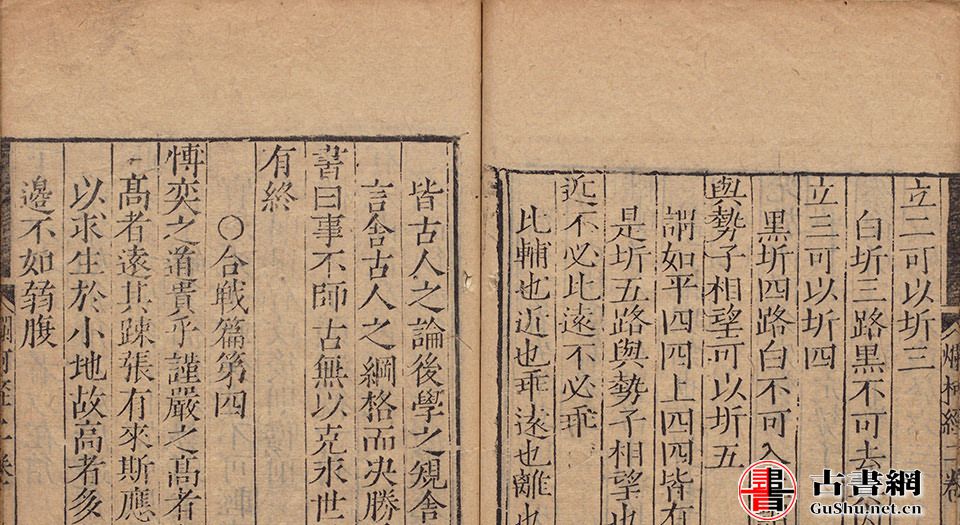 立二可以坼三
白坼三路黑不可去
立三可以坼四
黑坼四路白不可入
與勢子相望可以坼五
謂如平四四上四四皆有
是坼五路與勢子相望也
近不必比遠不必乖
比輔也近也乖遠也離也
爛柯經一卷
皆古人之論後學之規舍
言舍古人之綱格而决勝
書曰事不師古無以克永世
有終
○合戰篇第四
愽奕之道貴乎謹嚴之高者
高者遠其踈張有來斯應
以求生於小地故高者多
邊不如觜腹
書 古書網
GuShu.net.cn